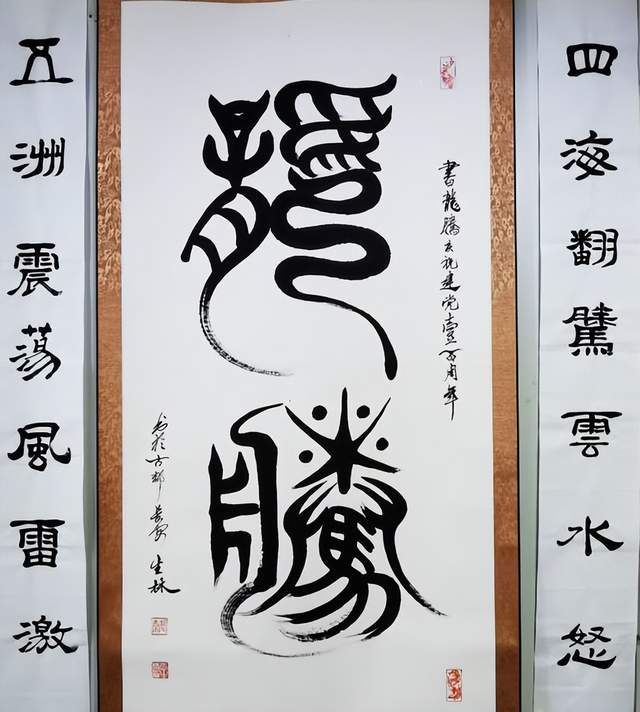 四海翻騰雲水怒
書龍騰庆祝建党壹百周年
龍騰
书於古都長安 生林
五洲震蕩風雷激